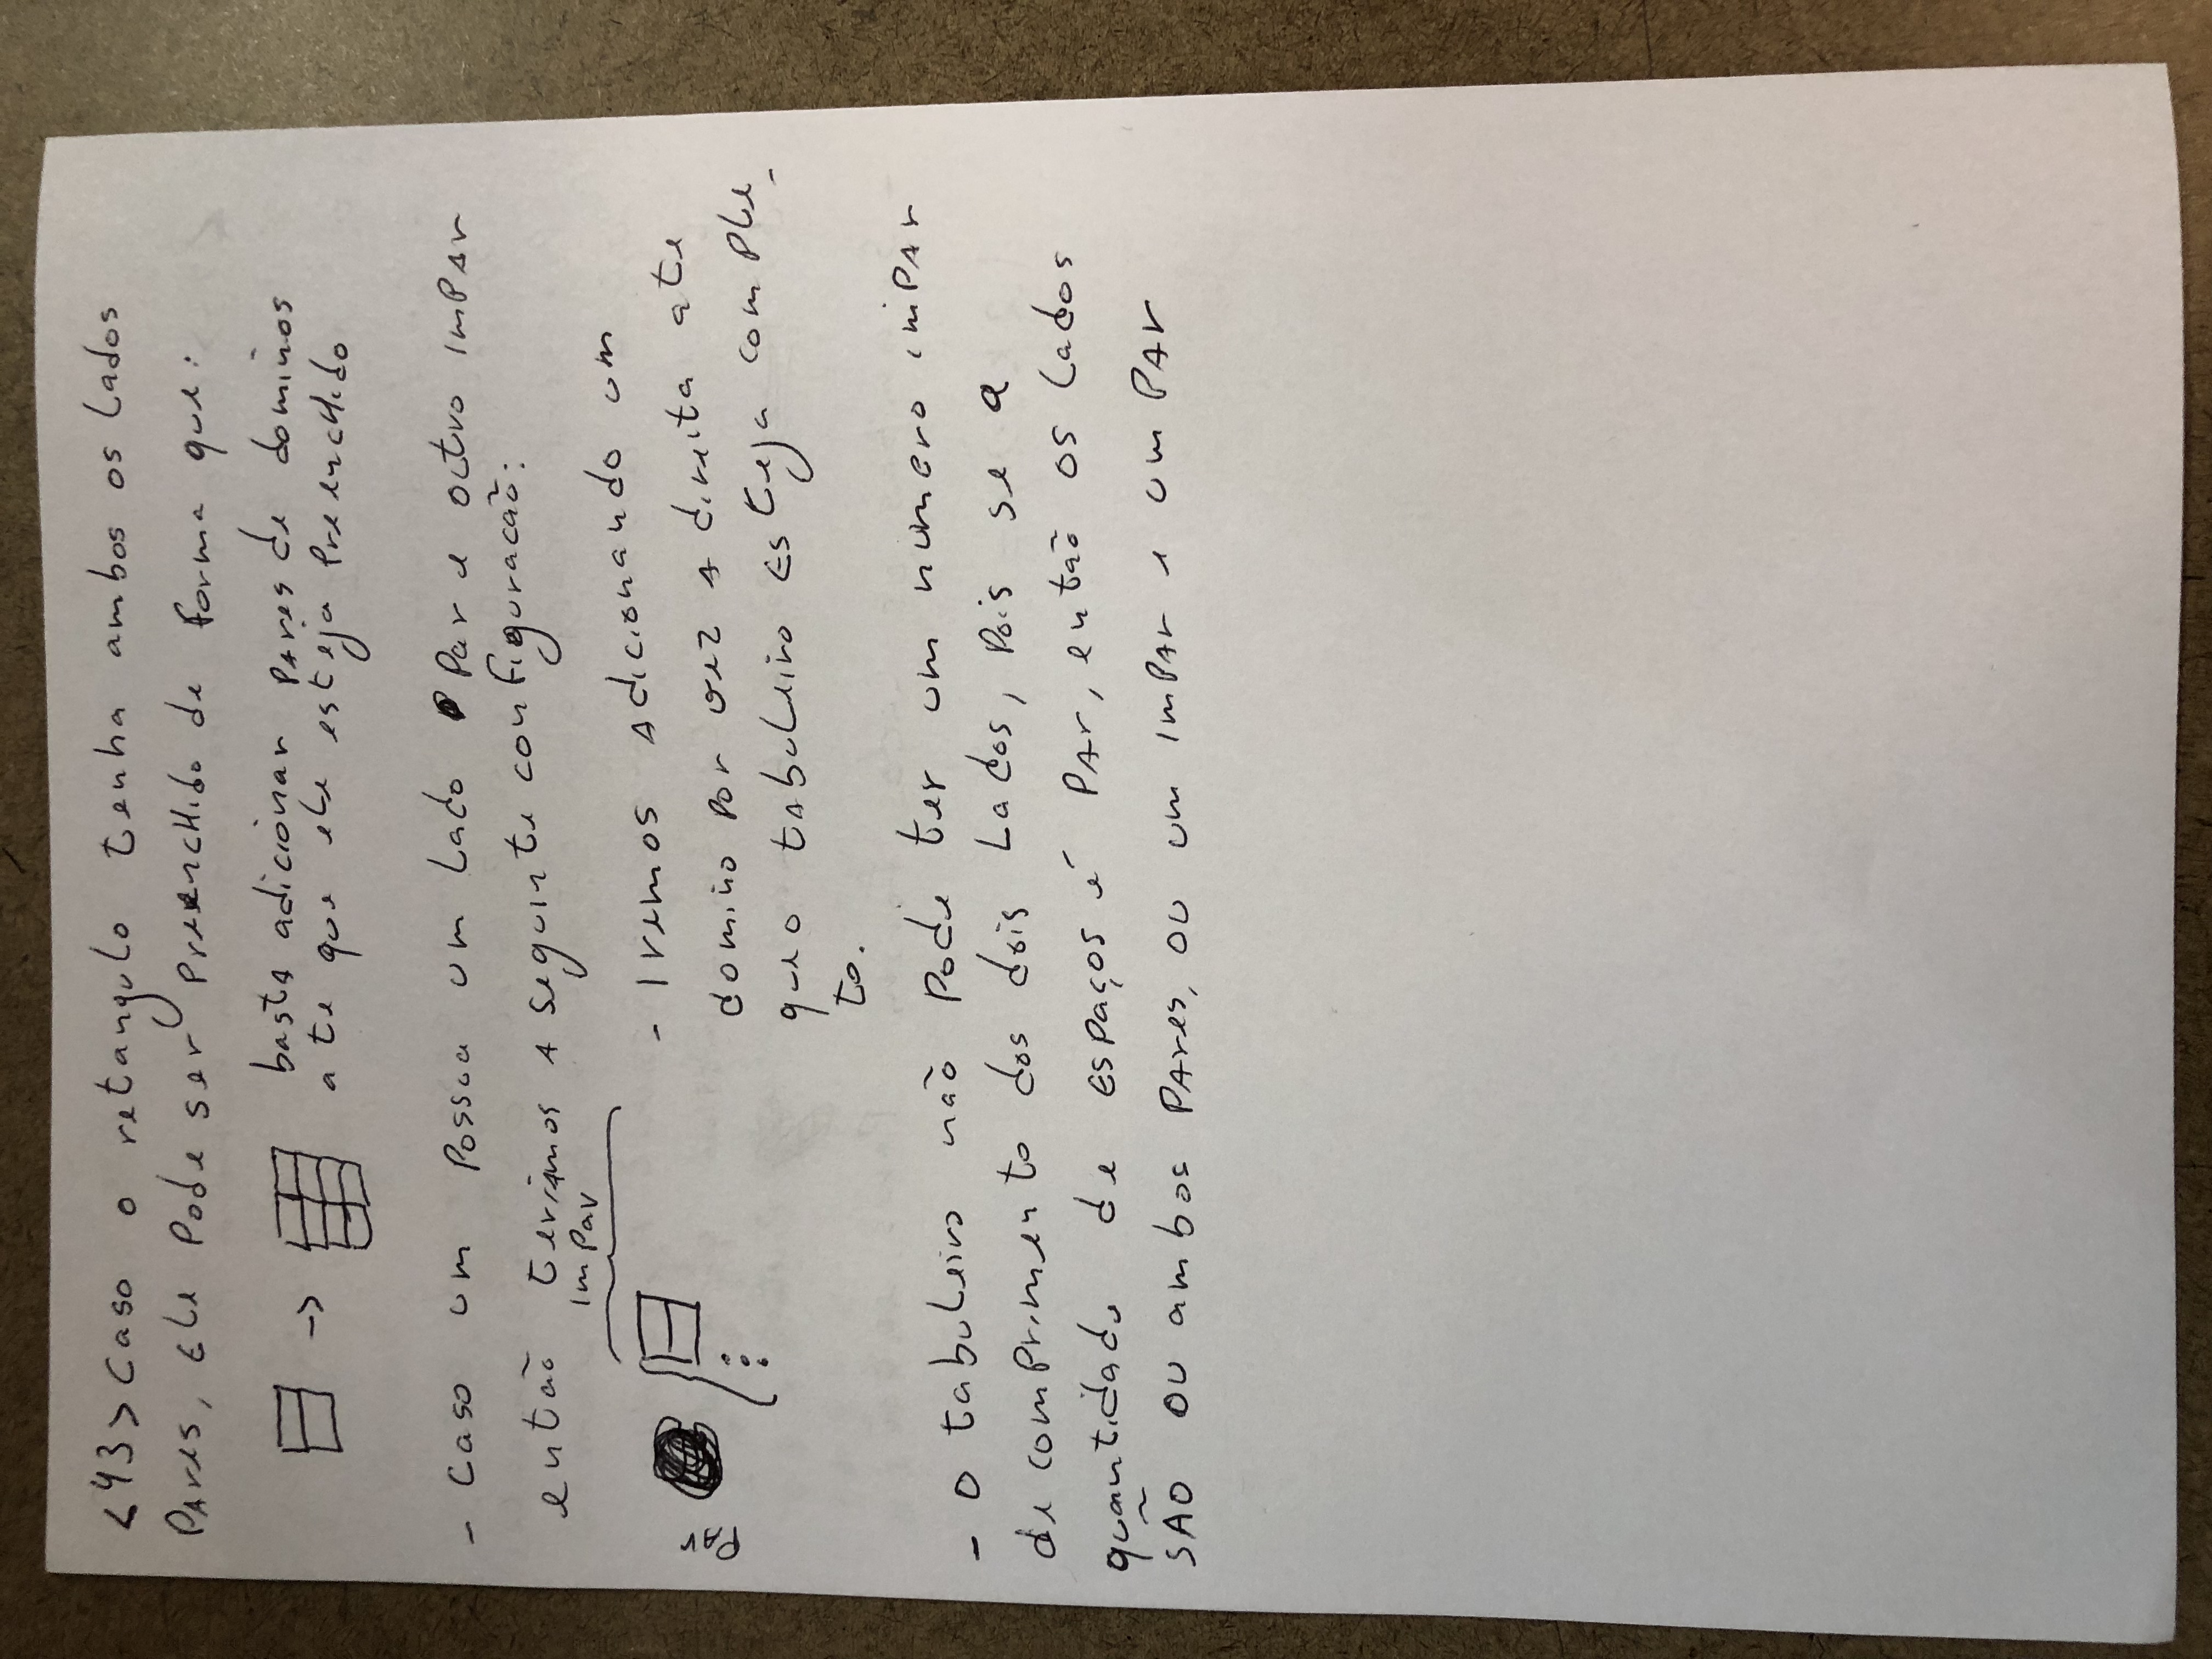 <43> Caso o retangulo tenha ambos os lados
Pares, Ele Pode ser Preenchido de forma que:
basta adicionar Pares de dominos
ate que ele esteja Preenchido
- Caso um Possua um lado Par e outro imPar
então teriamos a seguinte configuracão:
imPar
Par
- Iremos adicionando um
domino Por vez a direita ate
que o tabuleiro esteja comPle-
to.
- O tabuleiro não Pode ter um numero imPar
de comPrimento dos dois Lados, Pois se a
quantidade de esPaços é Par, então os Lados
SÃO OU ambos Pares, ou um imPar e um Par